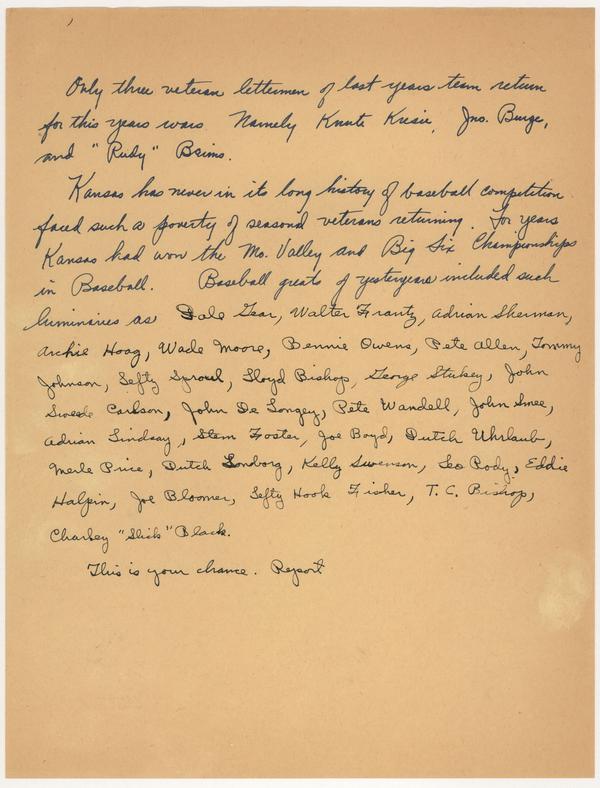 Only three veteran lettermen of last years team return
for this years wars. Namely Knute Kresie, Jno. Burge,
and "Rudy" Beims.
Kansas has never in its long history of baseball competition
faced such a poverty of seasoned veterans returning. For years
Kansas had won the Mo. Valley and Big Six Championships
in Baseball. Baseball greats of yesteryears included such
luminaires as Dale Gear, Walter Frantz, Adrian Sherman,
Archie Hoag, Wade Moore, Bennie Owens, Pete Allen, Tommy
Johnson, Lefty Sproul, Lloyd Bishop, George Stukey, John
Swede Carlson, John De Longey, Pete Wandell, John Smee,
Adrian Lindsay, Stem Foster, Joe Boyd, Dutch Uhrlaub,
Merle Price, Dutch Lonborg, Kelly Swenson, Leo Rody, Eddie
Halpin, Joe Bloomer, Lefty Hook Fisher, T. C. Bishop,
Charley "Slick" Black.
This is your chance. Report